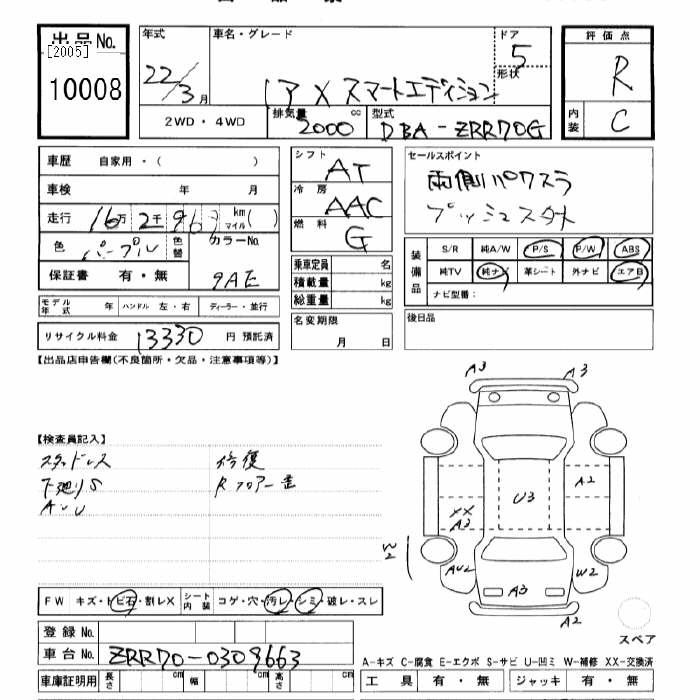 出品No.
[2005]
10008
年式
22/3月
車名・グレード
ノア X スマートエディション
ドア
5
形状
評価点
R
内装
C
2WD・4WD
排気量
2000 cc
型式
DBA-ZRR70G
車歴 自家用・( )
車検 年 月
走行 16万2千96 km マイル( )
色 パープル 色替
カラーNo.
9AE
保証書 有・無
モデル年式 年 ハンドル 左・右 ディーラー・並行
リサイクル料金 13330 円 預託済
シフト
AT
冷房
AAC
燃料
G
乗車定員 名
積載量 kg
総重量 kg
名変期限
月 日
セールスポイント
両側パワスラ
プッシュスタート
装備品
S/R 純A/W P/S P/W ABS
純TV 純ナビ 革シート 外ナビ エアB
ナビ型番:
後日品
【出品店申告欄(不良箇所・欠品・注意事項等)】
【検査員記入】
スタッドレス
下廻りS
AUU
修復
Rフロアー歪
A3
A3
U3
A2
XX
A3
W2
AU2
A3
W2
A2
スペア
FW キズ・トビ石・割レX
シート内装 コゲ・穴・汚レ・シミ・破レ・スレ
登録No.
車台No. ZRR70-0309663
車庫証明用 長さ cm 幅 cm 高さ cm
A-キズ C-腐食 E-エクボ S-サビ U-凹ミ W-補修 XX-交換済
工具 有・無 ジャッキ 有・無